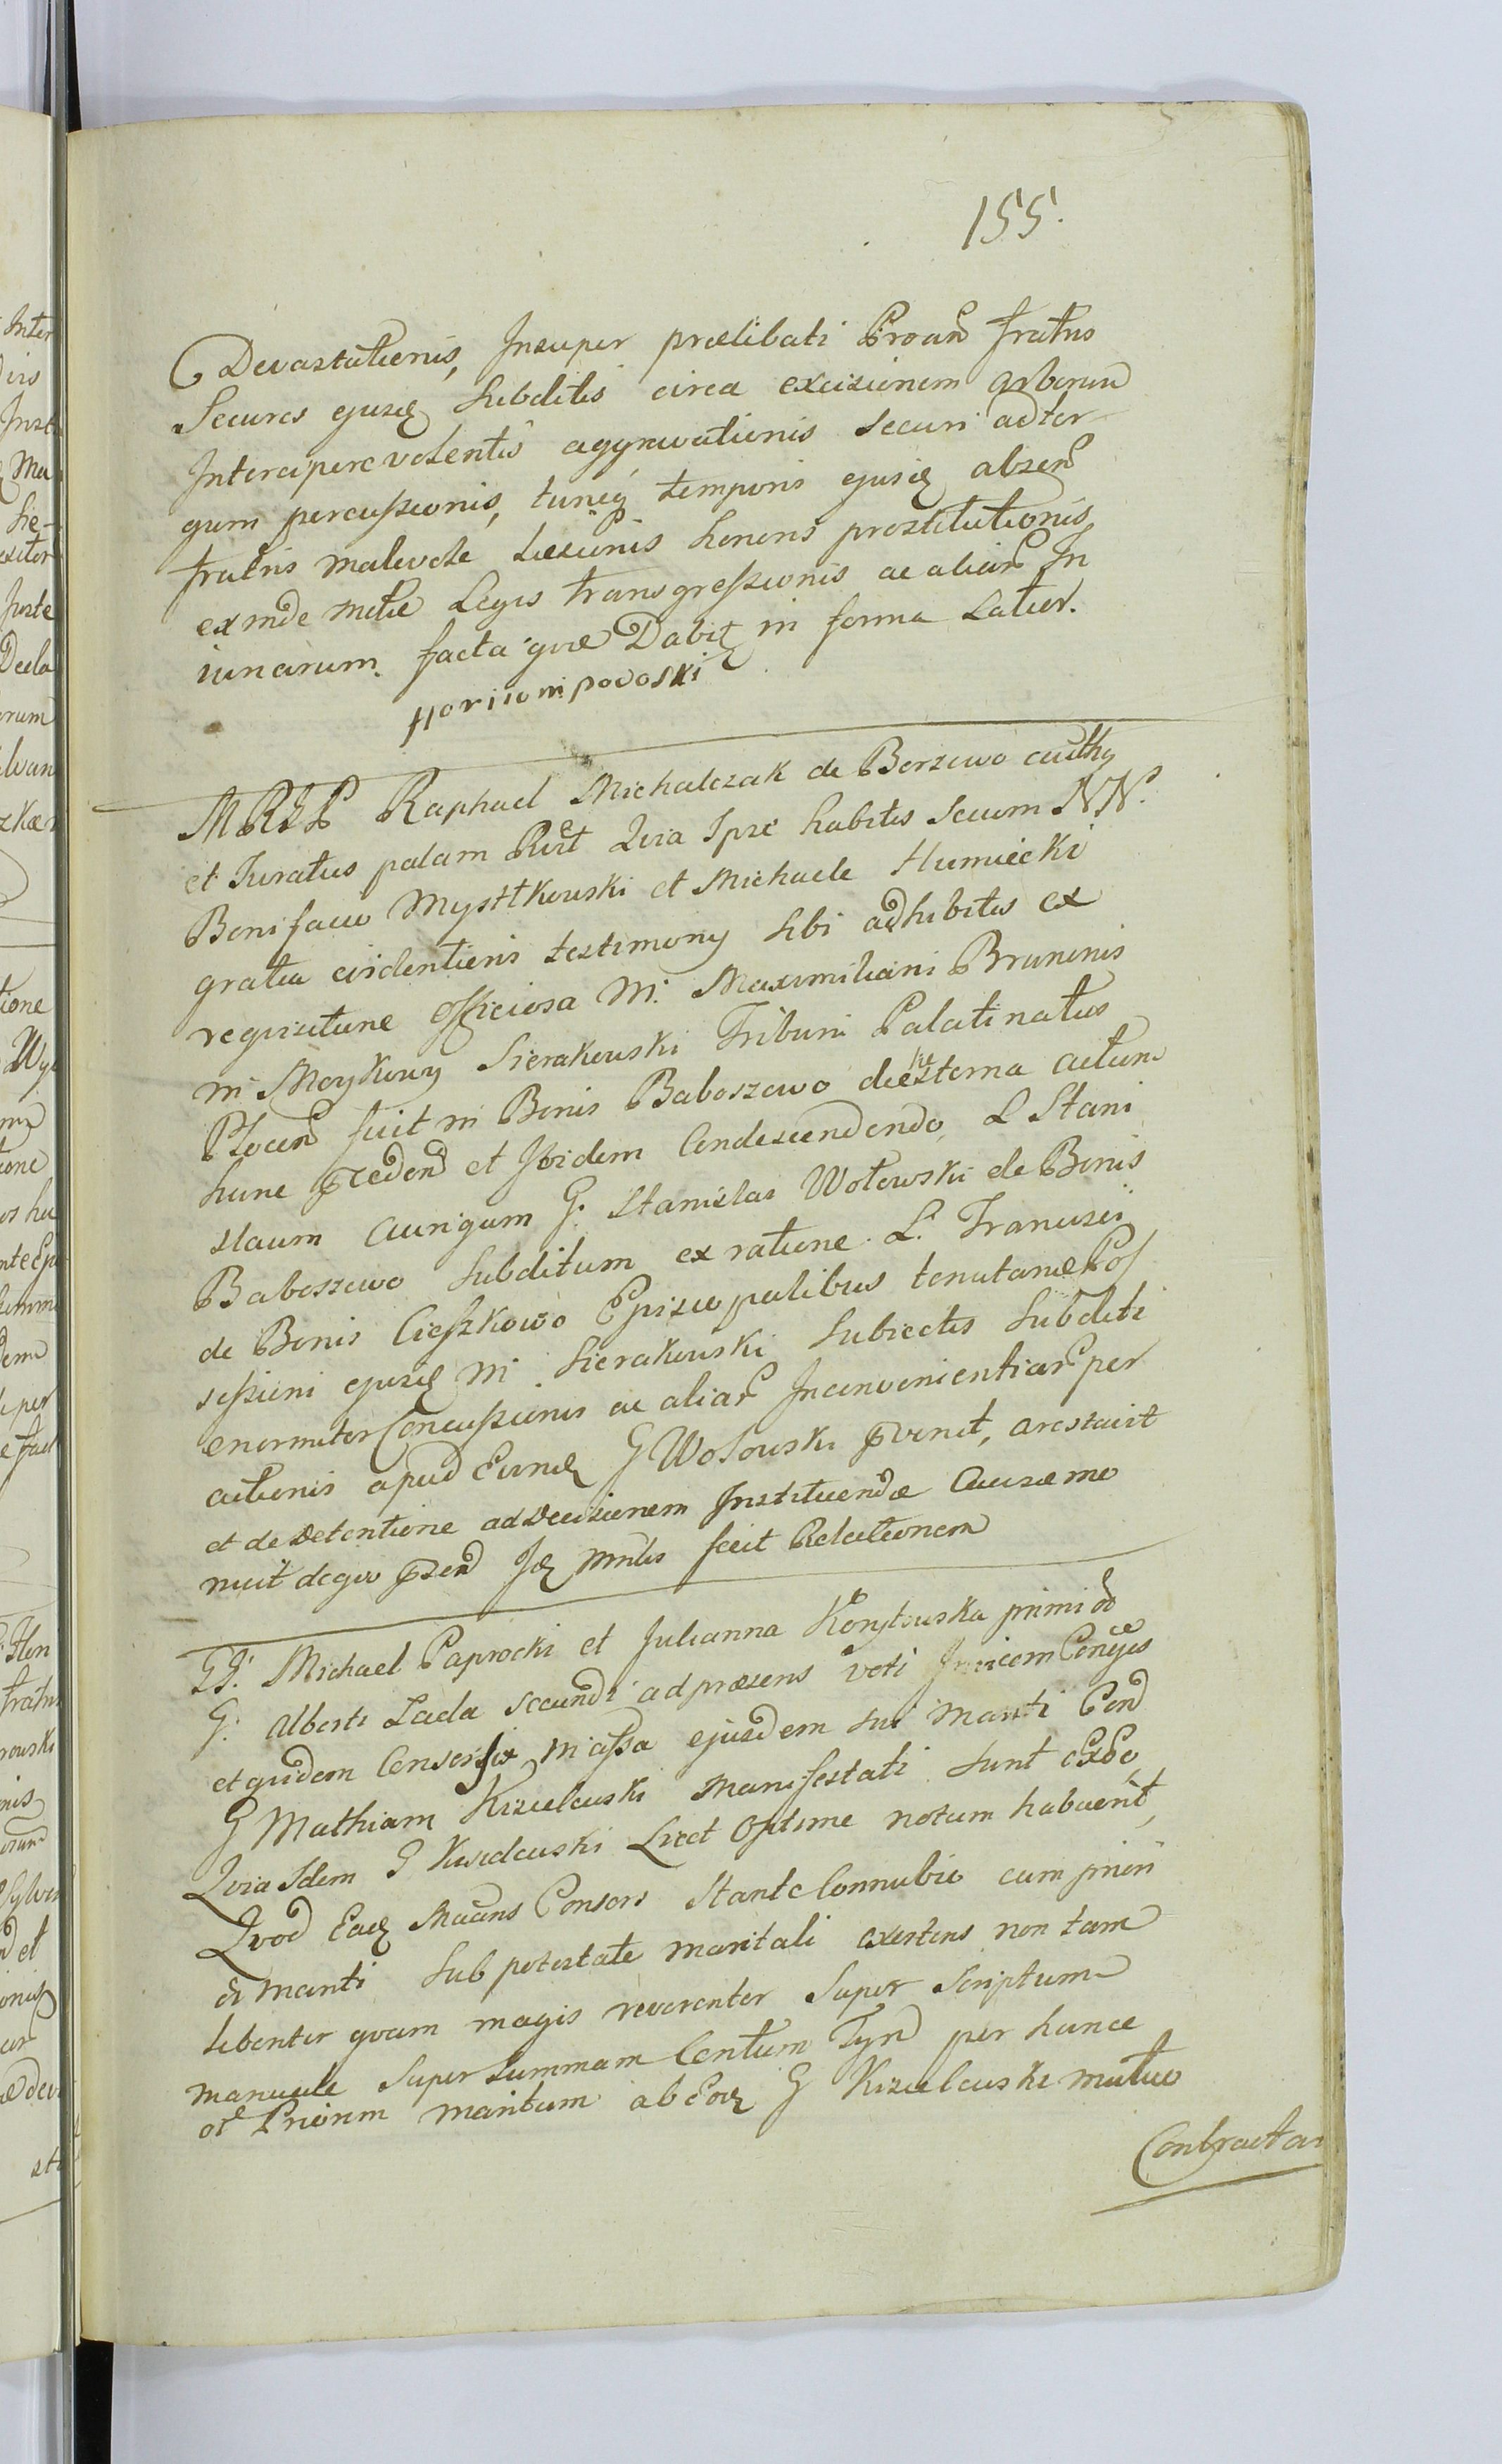 155.
Devastationis, Insuper praelibati Proan Fratris
Secures ejusq subditis circa excisionem arborum
Intercipere volentis aggravationis securi ad ter-
gum percussionis, tuncq temporis ejusq absen
fratris malevole Laesionis honoris prostitutionis,
exinde metu Legis transgressionis ac aliar In
iuriarum. facta quae Dabit in forma Latior.
MRGP Raphael Michalczak de Borzewo authq
et Iuratus palam Rert Quia Ipse habitis secum NN.
Bonifacio Mystkowski et Michaele Humiecki
gratia evidentioris testimony sibi adhibitis ex
requisitione officiosa M. Maximiliani Brunonis
in Moykowy Sierakowski Tribuni Palatinatus
Plocen fuit in Bonis Baboszewo die hesterna actum
hunc pceden et Ibidem Condescendendo L Stani
slaum Aurigam G. Stanislai Wołowski de Bonis
Baboszewo subditum ex ratione L. Francisci
de Bonis Cieszkowo Episcopalibus tenutariae Pos
sessioni ejusq M. Sierakowski subiectis subditi
enormiter Concussionis ac aliar Inconvenientiar per
actionis apud Eunq G Wołowski pvenit, arestavit
et de detentione ad decisionem Instituendae Causae mo
nuit de quo pzen Iq Mntlis fecit Relationem
GG. Michael Paprocki et Julianna Konytowska primi oo
G. Alberti Lada secundi ad praesens voti Invicem Conjges
et quidem Consors in assa ejusdem sui Mariti Con
G Mathiam Kisielewski Manifestati sunt
Quia Idem G Kisielewski Licet Optime notum habuerit,
Quod Eaq Maans Consors Stante Connubio cum priori
suo Mariti sub potestate maritali existens non tam
libenter quam magis reverenter Super Scriptum
manuale super summam Centum Tyn per hunce
oe Priorem maritum ab Eoq G Kisielewski mutuo
Contractam